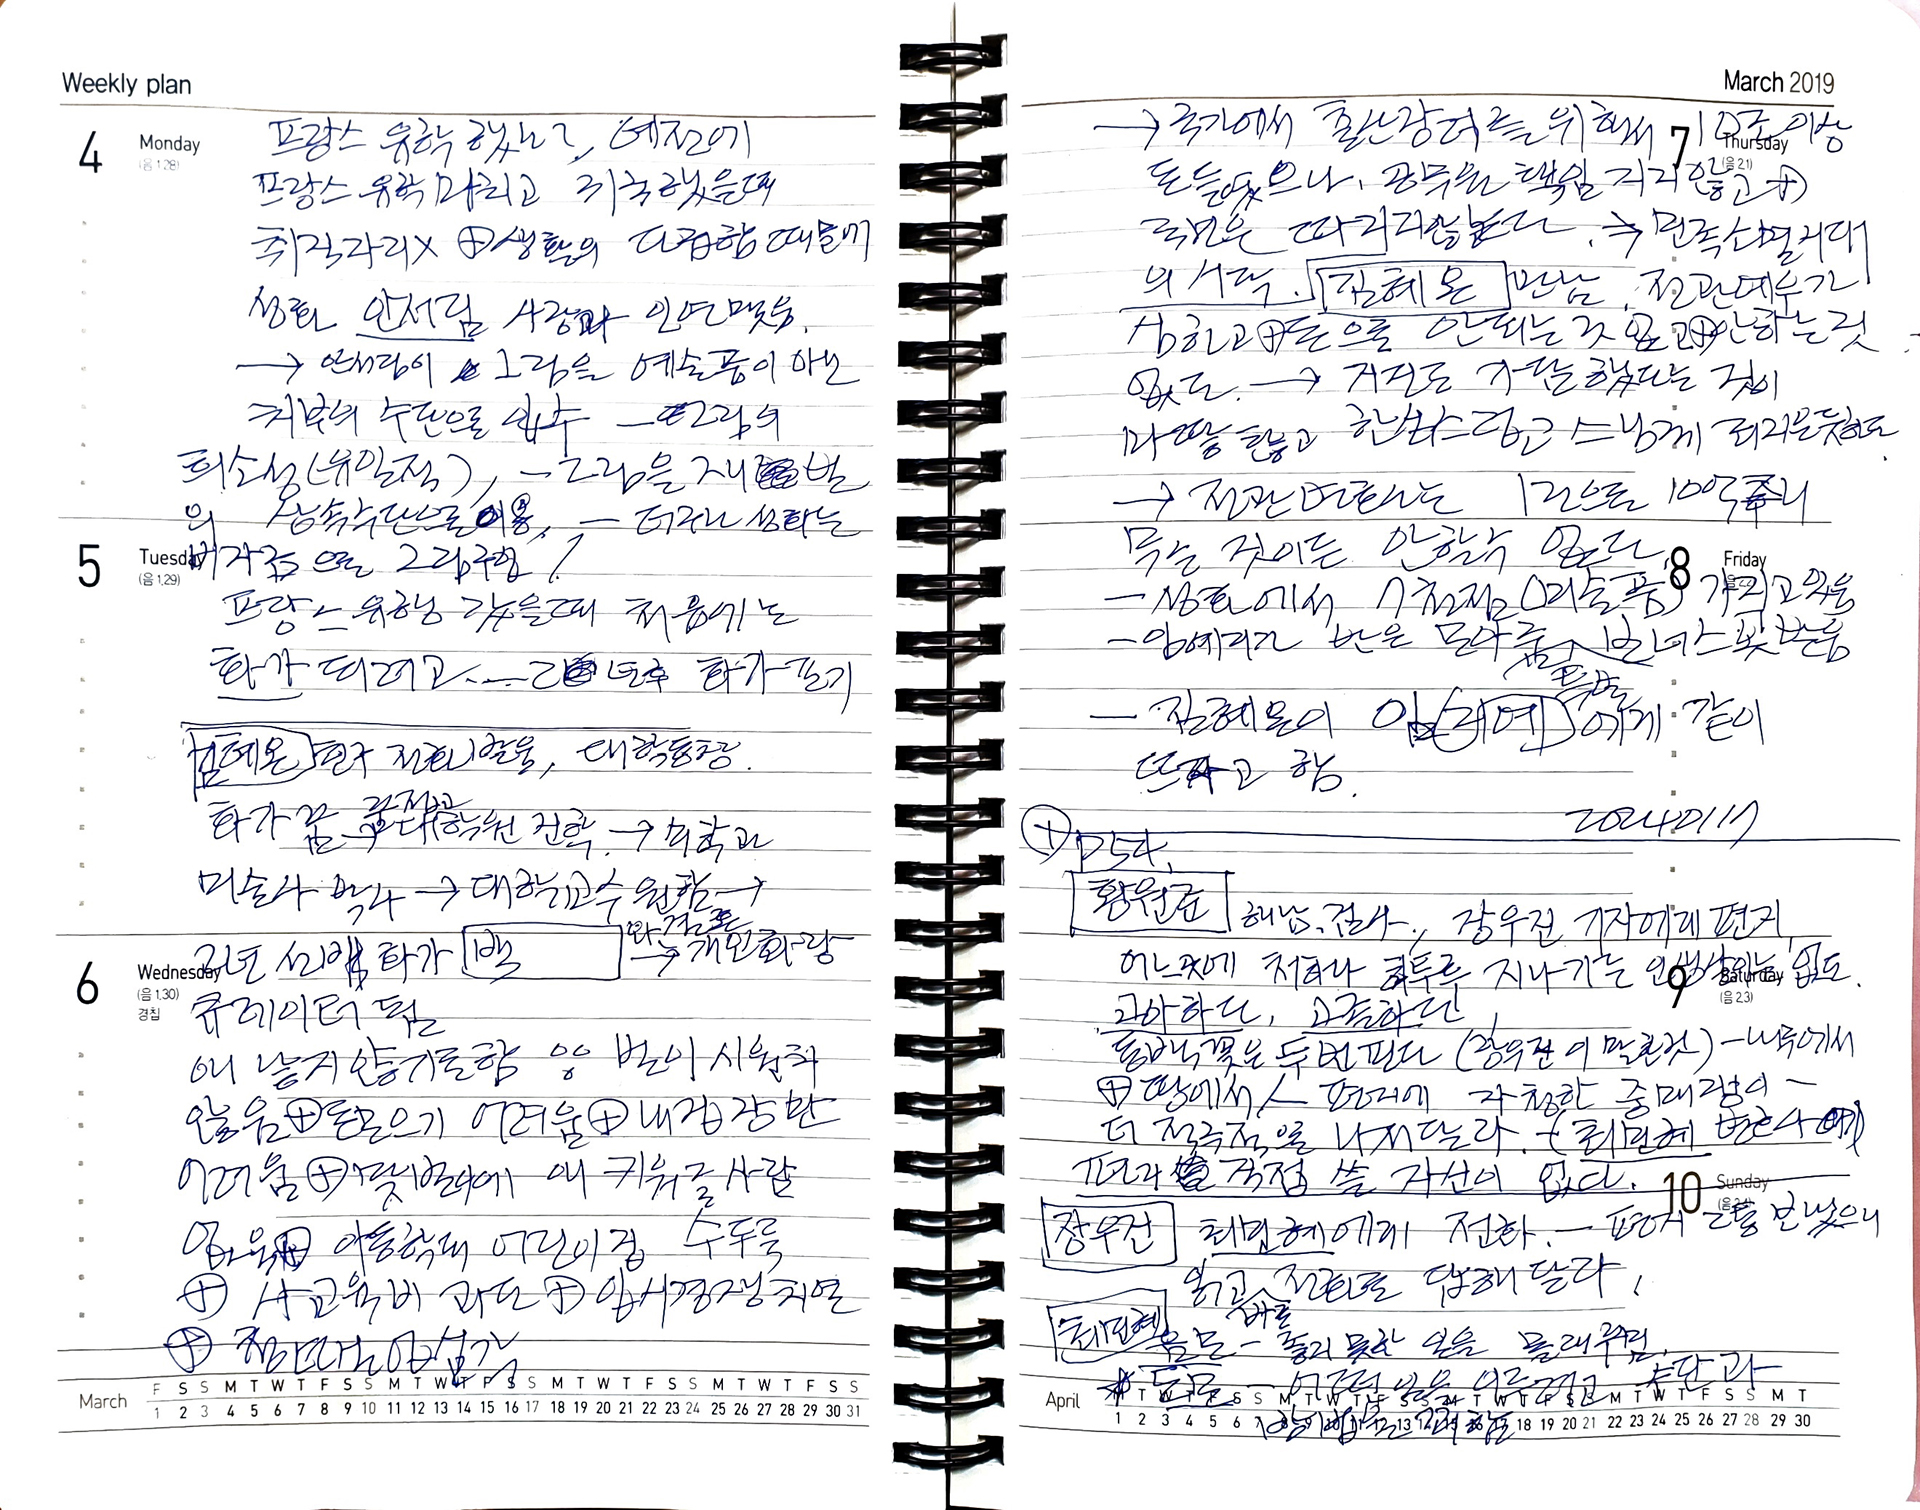 Weekly plan
4 Monday
(음 1.28)
프랑스 유학 했느니, 예전에
프랑스 유학 마치고 귀국했을때
취직자리X ⊕생활의 다급함 때문에
성화 안서림 사장과 인연 맺음.
→ 안서림이 그림을 예술품이 아닌
치부의 수단으로 입수 — 그림의
희소성(유일적), — 그림을 재벌
의 상속수단으로 이용, — 더구나 성화는
5 Tuesday
(음 1.29)
비자금으로 그림구입!
프랑스 유학 갔을때 처음에는
화가 되려고...— 2년후 화가 포기
김혜온 전공, 대학동창.
화가 꿈 접고 대학원 진학. → 미학과
미술사 박사 → 대학교수 원함 →
6 Wednesday
(음 1.30)
경칩
화가 백 → 개인화랑
큐레이터 됨
애 낳지 않기로 함 ㅇㅇ 벌이 시원치
않음 ⊕ 돈 모으기 어려움 ⊕ 내집 장만
어려움 ⊕ 맞벌이에 애 키워줄 사람
없음 ⊕ 아동학대 어린이집 수두룩
⊕ 사교육비 과다 ⊕ 입시경쟁 치열
⊕
March
F S S M T W T F S S M T W T F S S M T W T F S S M T W T F S S
1 2 3 4 5 6 7 8 9 10 11 12 13 14 15 16 17 18 19 20 21 22 23 24 25 26 27 28 29 30 31
March 2019
7 Thursday
(음 2.1)
→ 국가에서 출산장려를 위해서 10조 이상
돈 들였으나, 공무원 책임지지 않고 ⊕
국민은 따지지 않는다. → 민족소멸시대
의 시작. 김혜온 만남, 전관예우가
심하고 ⊕ 돈으로 안되는 것 없고 ⊕ 안하는 것
없다. → 거짓도 자랑했다는 것이
마땅찮고 한심스럽고 스님께 죄지은듯하다.
→ 전관 변호사는 1건으로 100억
8 Friday
먹는 것이든 안할수 없다.
— 성화에서 수천점(미술품) 가지고 있음
— 임예지가 받은 보너스 못받음
— 김혜온이 임(예지)에게 같이
뜨자고 함.
20240117
⊕ P5다.
황원준 해남, 검사., 장우진 기자에게 편지
9 Saturday
(음 2.3)
어느것에 처하나 하루를 지나가는 인생살이는 없다.
고아하다, 고졸하다,
동백꽃은 두번 핀다 (장우진이 말한것) — 나무에서
⊕ 땅에서 편지에 자칭한 중매쟁이 —
더 적극적으로 나서달라. — (최민혜 변호사에게)
편지를 직접 쓸 자신이 없다.
10 Sunday
장우진 최민혜에게 전화. — 편지 보냈으니
읽고 바로 전화로 답해달라.
최민혜 음모 — 좋지 못한 일을 몰래 꾸밈.
도모 — 어떤 일을 이루려고 수단과
방법을 꾀함
April
T W T F S S M T W T F S S M T W T F S S M T W T F S S M T
1 2 3 4 5 6 7 8 9 10 11 12 13 14 15 16 17 18 19 20 21 22 23 24 25 26 27 28 29 30